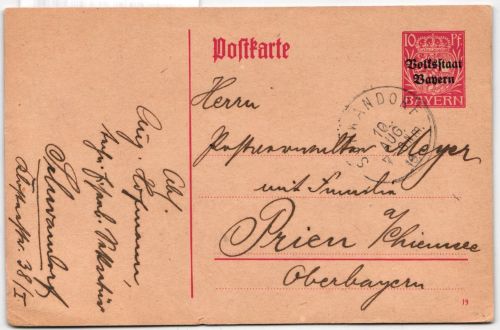 Postkarte
10 Pf
Volksstaat
Bayern
BAYERN
SCHWANDORF
10
AUG.
Herrn
Postverwalter Meyer
mit Familie
Prien a/Chiemsee
Oberbayern
Abs.
Aug. Hofmann,
Schwandorf
38/I
19